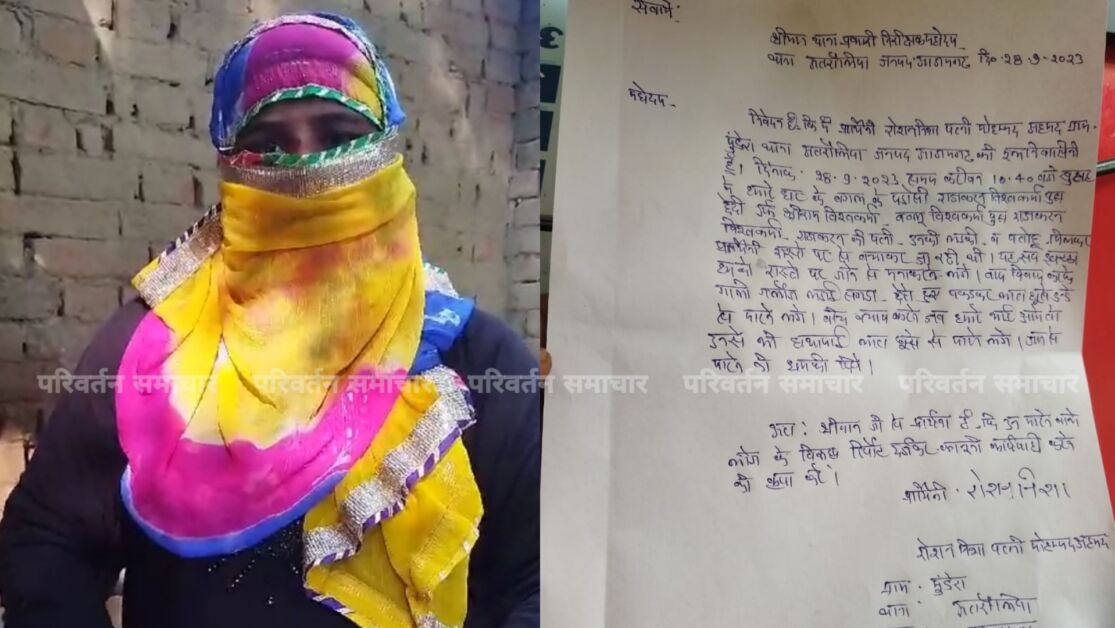 सेवामें:
श्रीमान थाना प्रभारी निरीक्षक महोदय
थाना अतरौलिया जनपद आजमगढ़ दि० 28-9-2023
महोदय -
निवेदन है कि मैं प्रार्थिनी रोशन निशा पत्नी मोहम्मद अहमद ग्राम -
मुंडेरा थाना अतरौलिया जनपद आजमगढ़ की निवासीनी
हूँ। दिनांक 28-9-2023 समय करीबन 10.40 बजे सुबह
में हमारे घर के बगल के पड़ोसी राजकरन विश्वकर्मा पुत्र
उर्फ श्रीराम विश्वकर्मा - बबलू विश्वकर्मा पुत्र राजकरन
विश्वकर्मा - राजकरन की पत्नी - उनकी लडकी - व पतोहू
प्रार्थिनी रास्ते पर से जा रही थी। यह सब
हमको रास्ते पर जाने से मना करने लगे। वाद विवाद करके
गाली गलौज लड़ाई झगड़ा लात घुसे डन्डे
से मारने लगे। बीच बचाव करने जब हमारे
उनसे भी हाथापाई लात घूसे से मारने लगे। जान से
मारने की धमकी दिये।
अतः श्रीमान जी से प्रार्थना है कि उन मारने वाले
लोग के विरूद्ध रिपोर्ट दर्ज कर कानूनी कार्यवाही करने
की कृपा करें।
प्रार्थिनी - रोशन निशा
रोशन निशा पत्नी मोहम्मद अहमद
ग्राम - मुंडेरा
थाना अतरौलिया
परिवर्तन समाचार परिवर्तन समाचार परिवर्तन समाचार परिवर्तन समाचार परिवर्तन समाचार